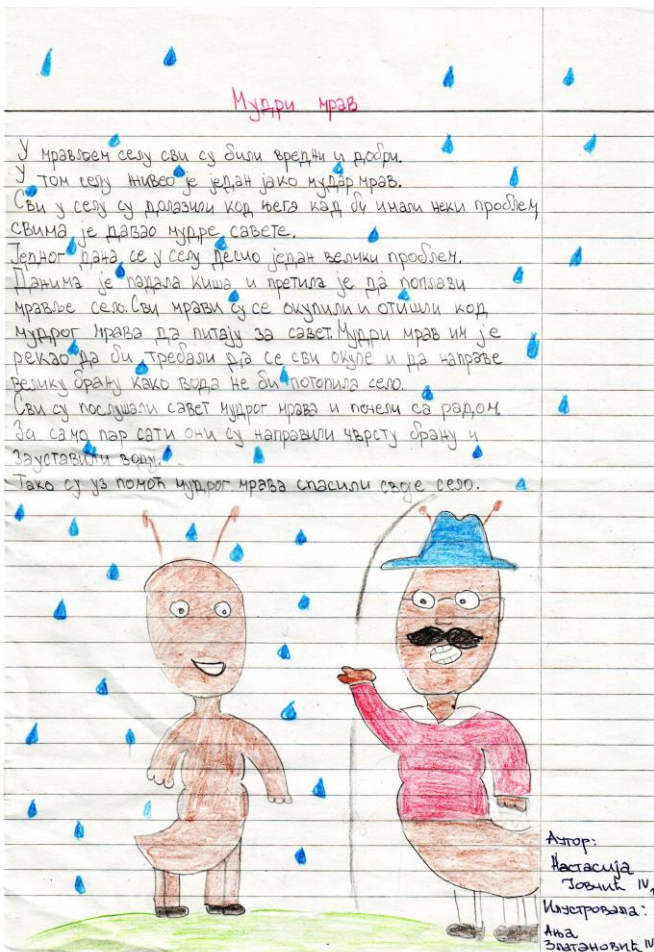 Мудри мрав
У мрављем селу сви су били вредни и добри.
У том селу живео је један јако мудар мрав.
Сви у селу су долазили код њега кад би имали неки проблем
свима је давао мудре савете.
Једног дана се у селу десио један велики проблем.
Данима је падала киша и претила је да поплави
мравље село. Сви мрави су се окупили и отишли код
мудрог мрава да питају за савет. Мудри мрав им је
рекао да би требали да се сви окупе и да направе
велику брану како вода не би потопила село.
Сви су послушали савет мудрог мрава и почели са радом
За само пар сати они су направили чврсту брану и
зауставили воду.
Тако су уз помоћ мудрог мрава спасили своје село.
Аутор:
Настасија
Јовчић IV₁
Илустровала:
Ања
Златановић IV